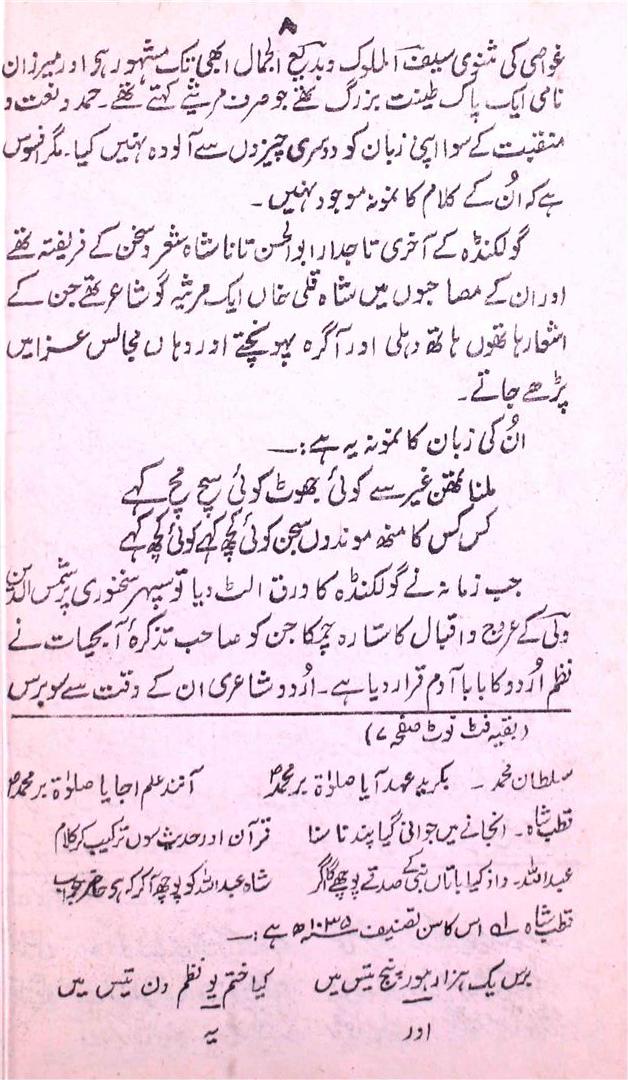 ۸
غوصی کی مثنوی سیف الملوک و بدیع الجمال ابھی تک مشہور ہو اور میرزان
نامی ایک پاک طینت بزرگ تھے جو صرف مرثیے کہتے تھے۔ حمد و نعت و
منقبت کے سوا اپنی زبان کو دوسری چیزوں سے آلودہ نہیں کیا۔ مگر افسوس
ہے کہ اُن کے کلام کا نمونہ موجود نہیں۔
گولکنڈہ کے آخری تاجدار ابوالحسن تانا شاہ شعر و سخن کے فریفتہ تھے
اور ان کے مصاحبوں میں شاہ قلی خاں ایک مرثیہ گو شاعر تھے جن کے
اشعار ہاتھوں ہاتھ دہلی اور آگرہ پہونچتے اور وہاں مجالس عزا میں
پڑھے جاتے۔
اُن کی زبان کا نمونہ یہ ہے:۔
ملنا تمھن غیر سے کوئی جھوٹ کوئی سچ مچ کہے
کس کس کا منھ موندوں سجن کوئی کچھ کہے کوئی کچھ کہے
جب زمانہ نے گولکنڈہ کا ورق الٹ دیا تو سپہر سخنوری پر شمس الدین
ولی کے عروج و اقبال کا ستارہ چمکا جن کو صاحب تذکرۂ آبحیات نے
نظم اُردو کا بابا آدم قرار دیا ہے۔ اُردو شاعری ان کے وقت سے سو برس
(بقیہ فٹ نوٹ صفحہ ۷)
سلطان محمد۔ بکرید عہد آیا صلوٰۃ بر محمدؐ آنند علم اجایا صلوٰۃ بر محمدؐ
قطب شاہ۔ انجانے میں جوانی گیا پند نا سنا قرآن اور حدیث سوں ترکیب کر کلام
عبداللہ۔ داد کیا باتاں نبی کے صدقے پوچھے گا گر شاہ عبداللہ کو پوچھ آکر کہ ہو حاضر جواب
قطب شاہ لے اس کا سن تصنیف ۱۰۳۵ھ ہے:۔
برس یک ہزار ہور پنچ تیس میں کیا ختم یو نظم دن تیس میں
اور یہ